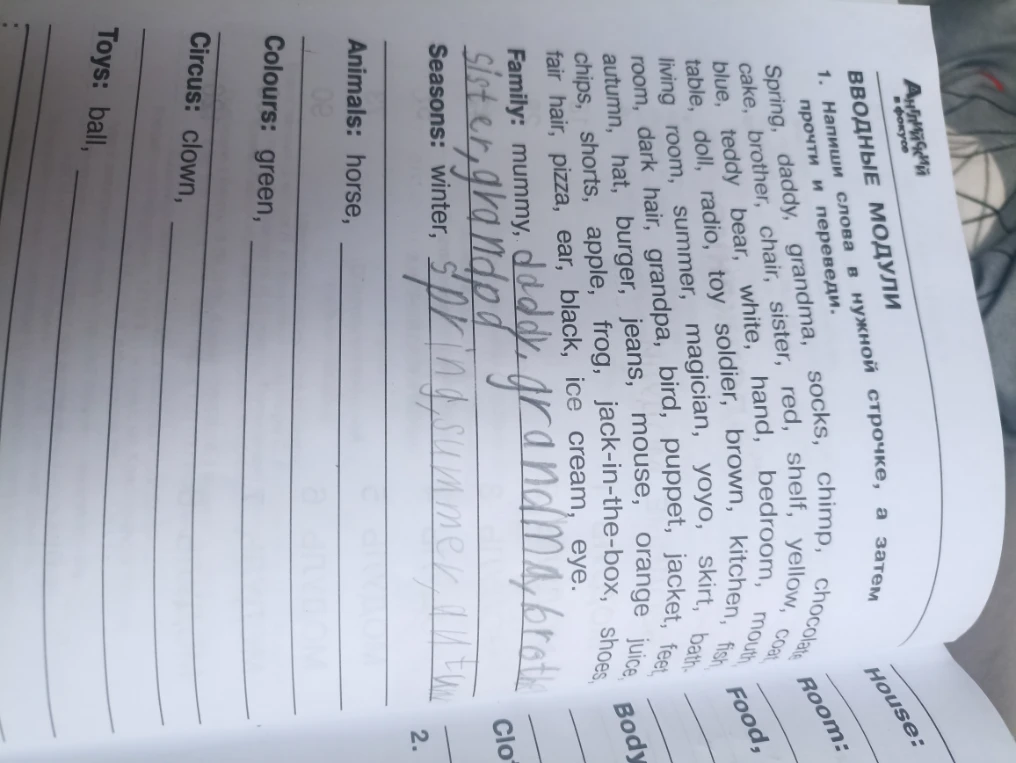 Английский
в фокусе
ВВОДНЫЕ МОДУЛИ
1. Напиши слова в нужной строчке, а затем
прочти и переведи.
Spring, daddy, grandma, socks, chimp, chocolate
cake, brother, chair, sister, red, shelf, yellow, coat,
blue, teddy bear, white, hand, bedroom, mouth,
table, doll, radio, toy soldier, brown, kitchen, fish,
living room, summer, magician, yoyo, skirt, bath-
room, dark hair, grandpa, bird, puppet, jacket, feet,
autumn, hat, burger, jeans, mouse, orange juice,
chips, shorts, apple, frog, jack-in-the-box, shoes,
fair hair, pizza, ear, black, ice cream, eye.
Family: mummy, daddy, grandma, broth
sister, grandpa
Seasons: winter, spring, summer, autum
Animals: horse,
Colours: green,
Circus: clown,
Toys: ball,
House:
Room:
Food,
Body
Clot
2.